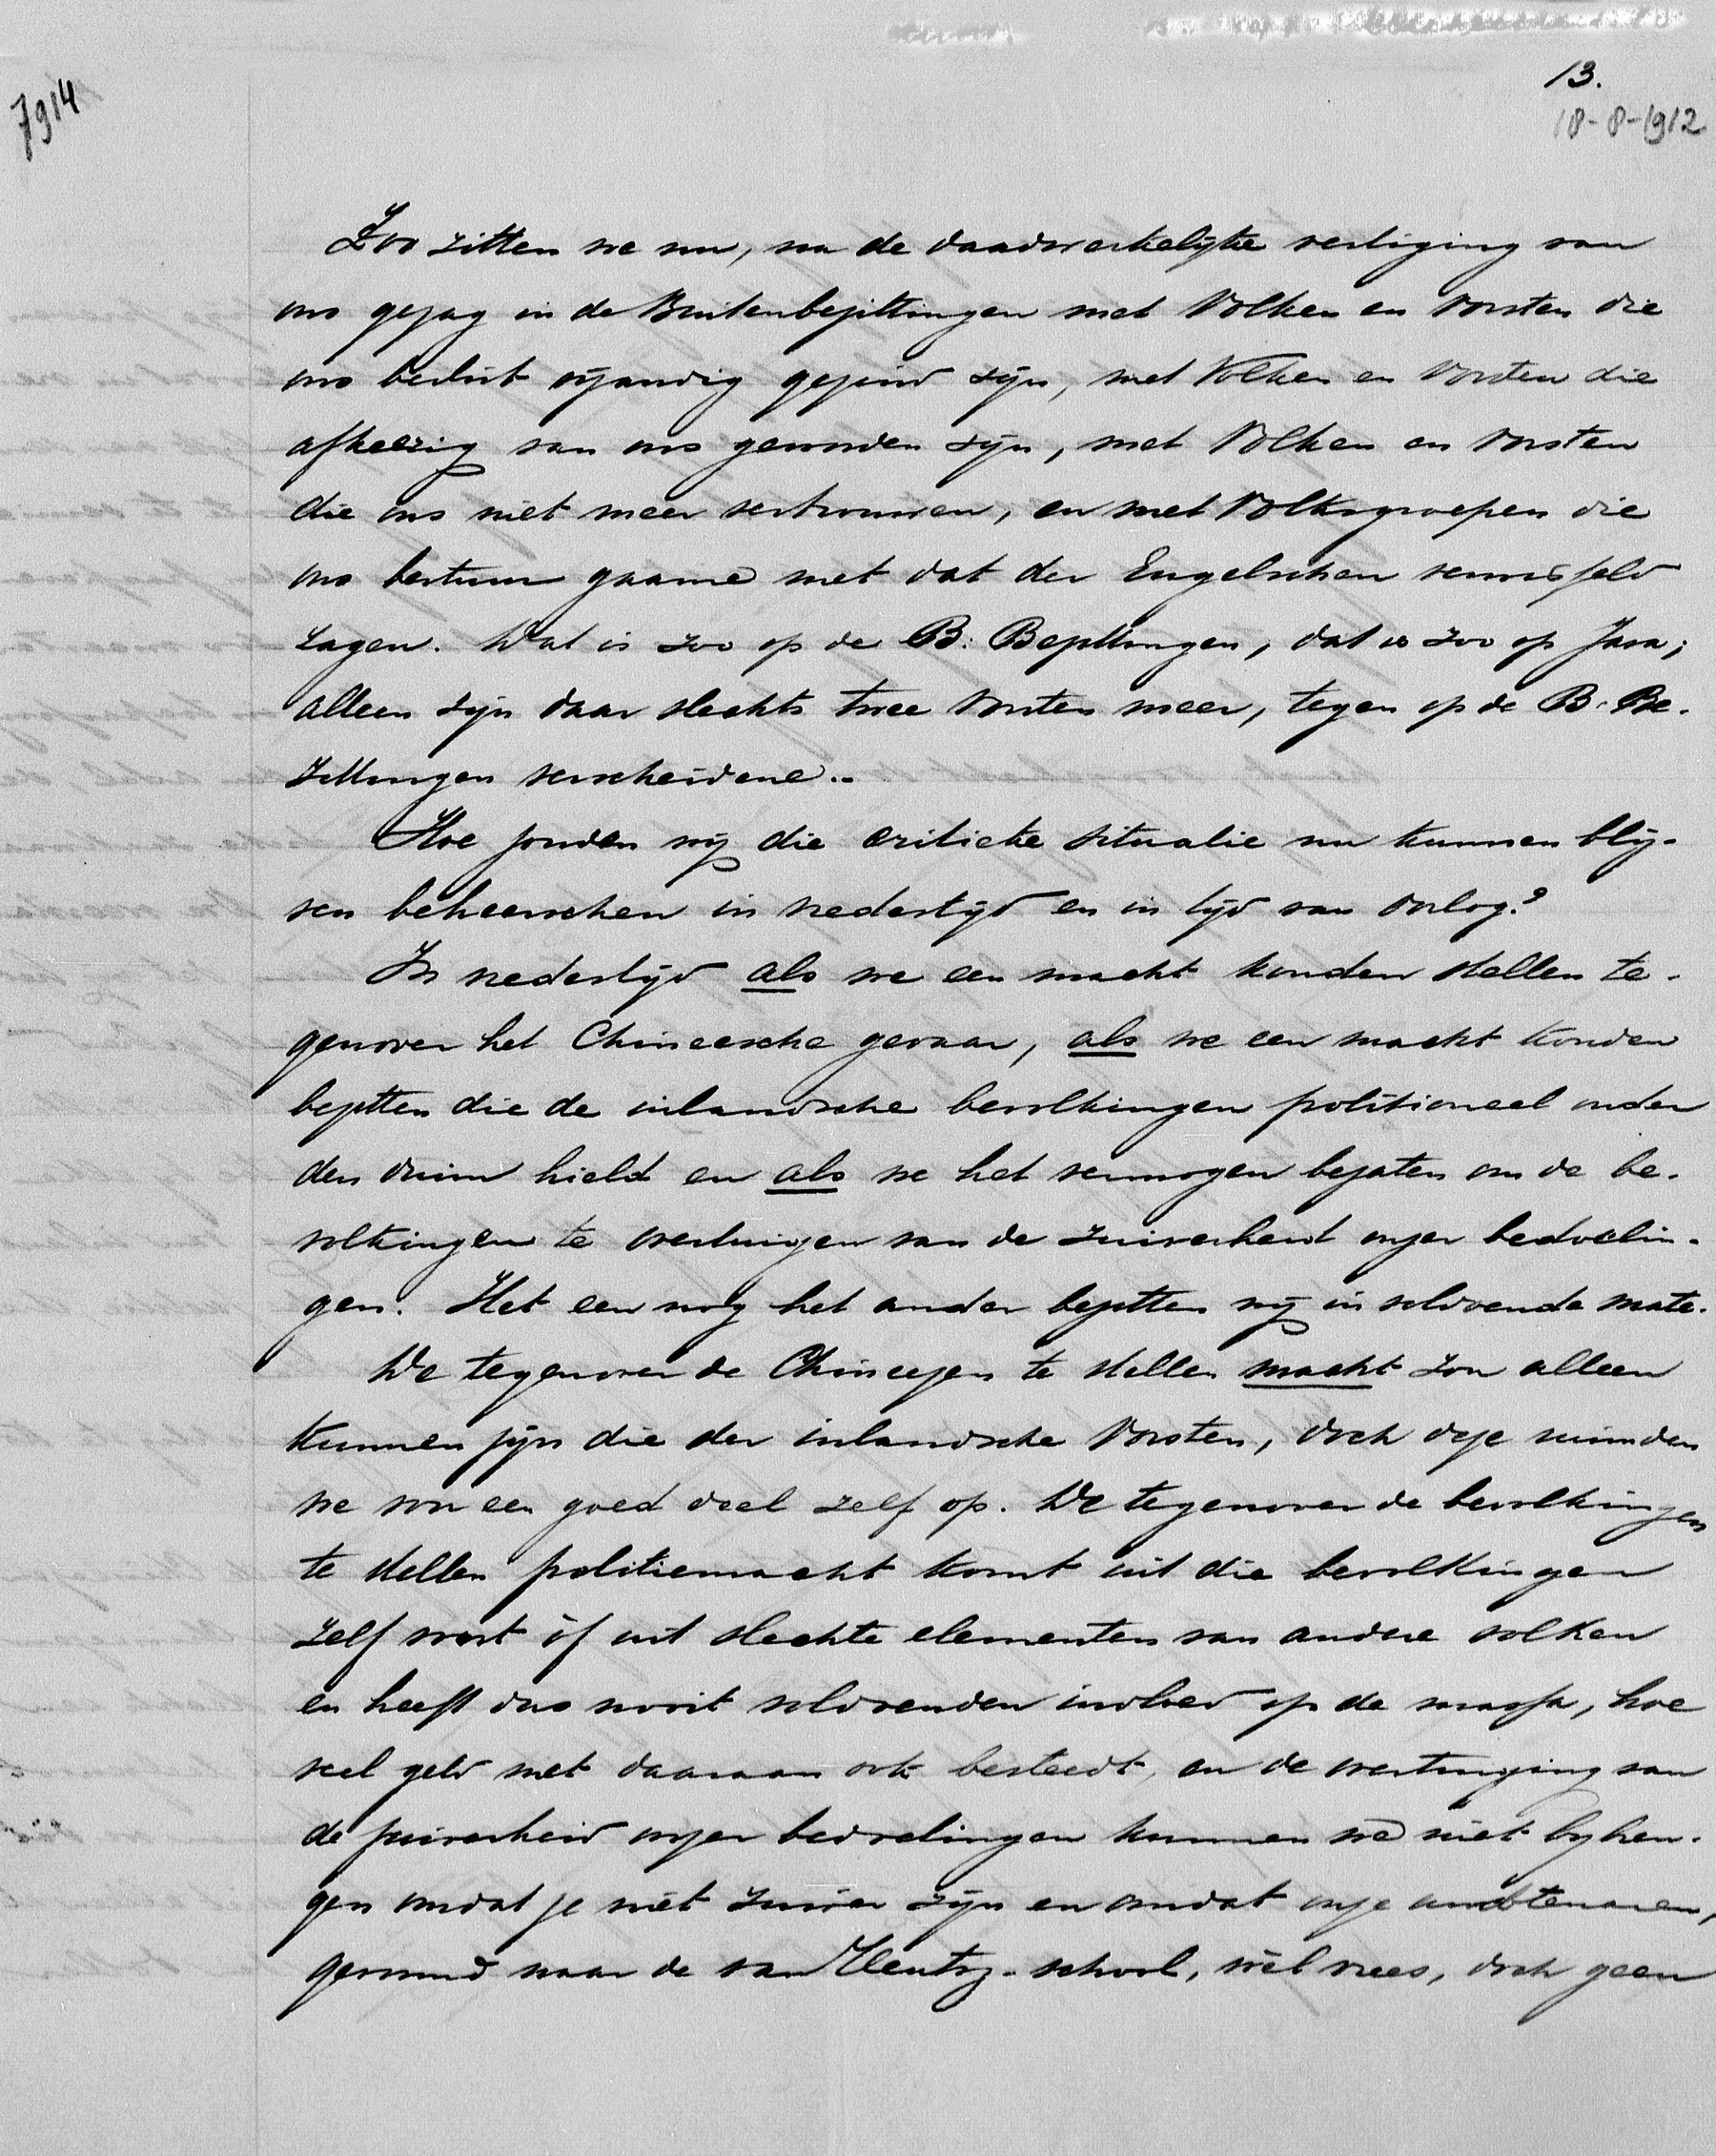 13.
18-8-1912
7914
Zoo zitten we nu, na de daadwerkelijke vestiging van
ons gezag in de Buitenbezittingen met Volken en Vorsten die
ons beslist vijandig gezind zijn, met Volken en Vorsten die
afkeerig van ons geworden zijn, met Volken en Vorsten
die ons niet meer vertrouwen, en met Volksgroepen die
ons bestuur gaarne met dat der Engelschen verwisseld
zagen. Dat is zoo op de B: Bezittingen, dat is zoo op Java;
alleen zijn daar slechts twee Vorsten meer, tegen op de B. Be-
zittingen verscheidene..
Hoe zouden wij die critieke situatie nu kunnen blij-
ven beheerschen in vredestijd en in tijd van oorlog?
In vredestijd als we een macht konden stellen te-
genover het Chineesche gevaar, als we een macht konden
bezitten die de inlandsche bevolkingen politioneel onder
den duim hield en als we het vermogen bezaten om de be-
volkingen te overtuigen van de zuiverheid onzer bedoelin-
gen. Het een nog het ander bezitten wij in voldoende mate.
De tegenover de Chineezen te stellen macht zou alleen
kunnen zijn die der inlandsche Vorsten, doch deze ruimden
we voor een goed deel zelf op. De tegenover de bevolkingen
te stellen politiemacht komt uit die bevolkingen
zelf voort óf uit slechte elementen van andere volken
en heeft dus nooit voldoenden invloed op de massa, hoe
veel geld met daaraan ook besteedt, en de overtuiging van
de zuiverheid onzer bedoelingen kunnen we niet bybren-
gen omdat ze niet zuiver zijn en omdat onze ambtenaren,
gevormd naar de van Heutsz-school, wèl vrees, doch geen